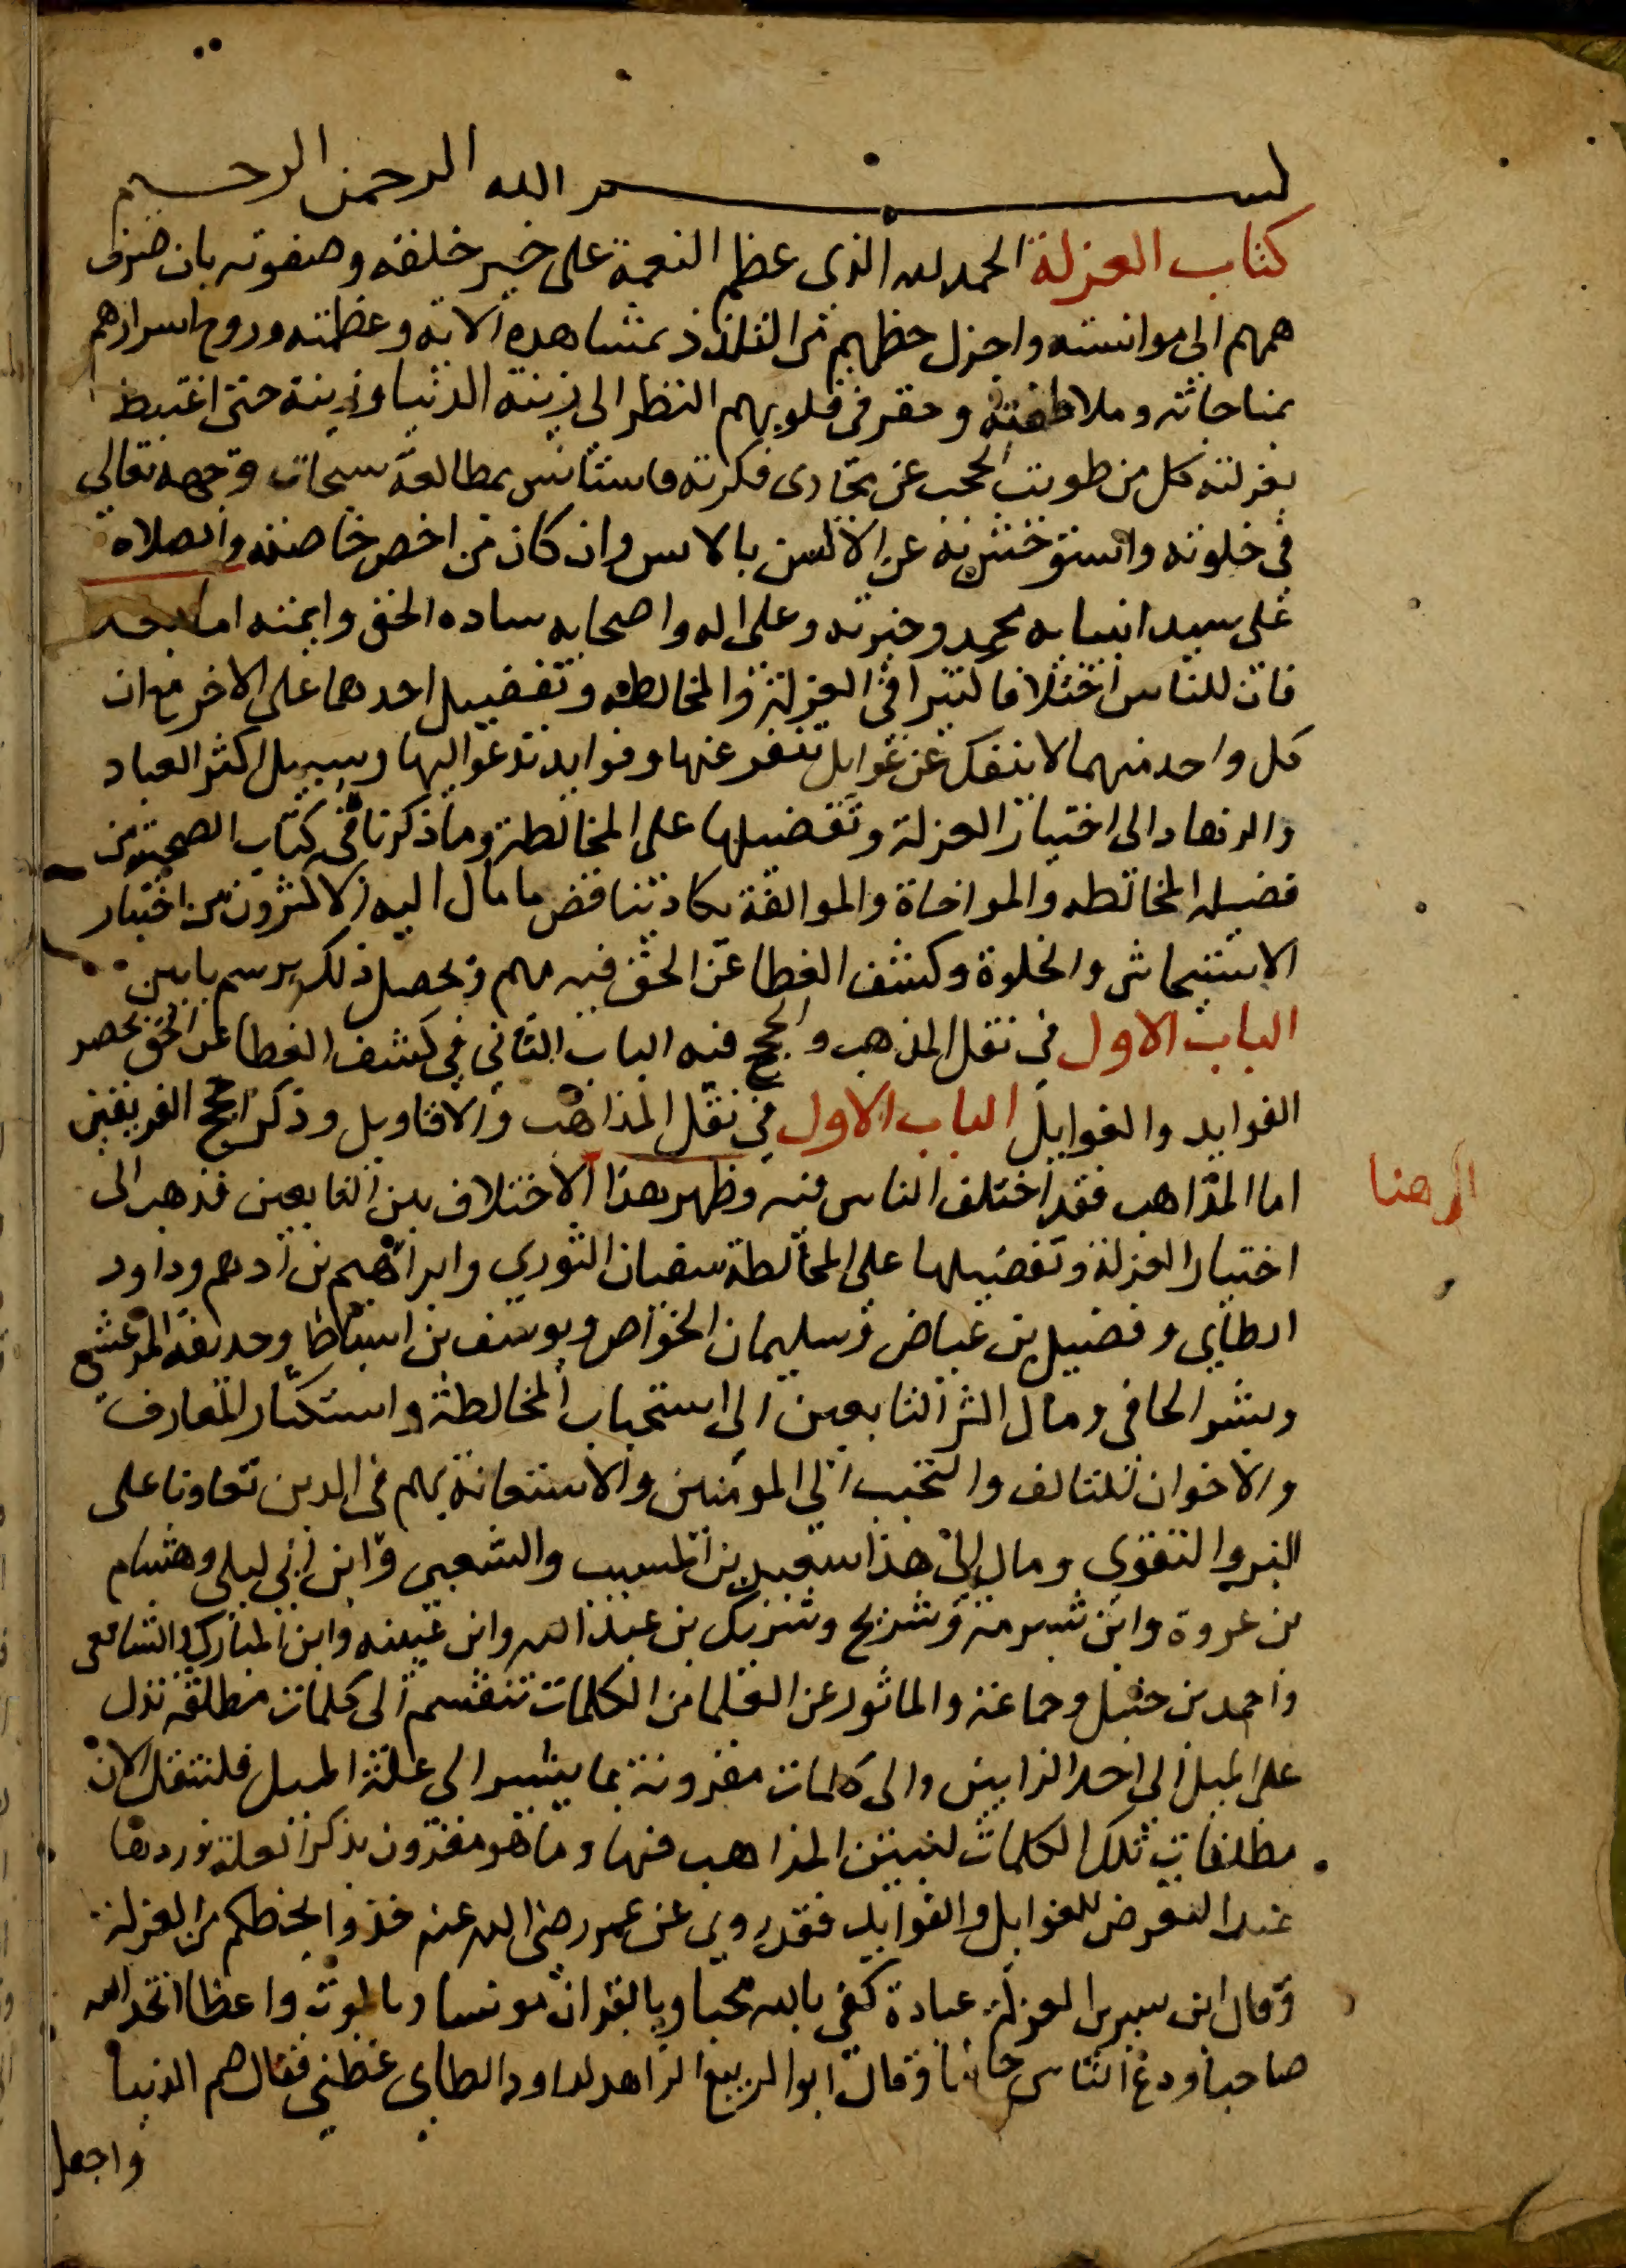 بسم الله الرحمن الرحيم
كتاب العزلة الحمد لله الذى عظم النعمة على خير خلقه وصفوته بان صرف
هممهم الى موانسته واجزل حظهم من التلذذ بمشاهدة الائه وعظمته وروح اسرارهم
بمناجاته وملاطفته وحقر فى قلوبهم النظر الى زينة الدنيا وزينة حتى اغتبط
بعزلته كل من طويت الحجب عن مجارى فكرته فاستانس بمطالعة سبحات وجهه تعالى
فى خلوته واستوحش به عن الانس بالانس وان كان من اخص خاصته والصلاه
على سيد انبيايه محمد وخيرته وعلى اله واصحابه ساده الحق وايمته اما بعد
فان للناس اختلافا كثيرا فى العزلة والمخالطه وتفضيل احدهما على الاخر مع ان
كل واحد منهما لا ينفك عن غوايل تنفر عنها وفوايد تدعوا اليها وسبيل اكثر العباد
والزهاد الى اختيار العزلة وتفضيلها على المخالطة وما ذكرناه فى كتاب الصحبة من
فضيله المخالطه والمواخاة والموالفة يكاد يتناقض ما مال اليه الاكثرون من اختيار
الاستيحاش والخلوة وكشف الغطا عن الحق فيه مهم ويحصل ذلك برسم بابين
الباب الاول فى نقل المذهب والحجج فيه الباب الثانى فى كشف الغطا عن الحق بحصر
الفوايد والغوايل الباب الاول فى نقل المذاهب والاقاويل وذكر حجج الفريقين
اما المذاهب فقد اختلف الناس فيه وظهر هذا الاختلاف بين التابعين فذهب الى
الى هنا
اختيار العزلة وتفضيلها على المخالطة سفيان الثوري وابراهيم بن ادهم وداود
الطاي وفضيل بن عياض وسليمان الخواص ويوسف بن اسباط وحديفة المرعشي
وبشر الحافى ومال اكثر التابعين الى استحباب المخالطة واستكثار المعارف
والاخوان للتالف والتحبب الي المومنين والاستعانة بهم فى الدين تعاونا على
البر والتقوي ومال الى هذا سعيد بن المسيب والشعبي وابن ابي ليلى وهشام
بن عروة وابن شبرمة وشريح وشريك بن عبد الله وابن عيينه وابن المبارك والشافعى
واحمد بن حنبل وجماعة والماثور عن العلما من الكلمات تنقسم الى كلمات مطلقة تدل
على الميل الى احد الرايين والى كلمات مقرونة بما يشير الى علة الميل فلننقل الان
مطلقات تلك الكلمات لنبين المذاهب فيها وما هو مقرون بذكر العلة نوردها
عند التعرض للغوايل والفوايد فقد روي عن عمر رضى الله عنه خذوا بحظكم من العزلة
وقال ابن سيرين العزلة عبادة كفى بالله محبا وبالقران مونسا وبالموت واعظا اتخذ الله
صاحبا ودع الناس جانبا وقال ابو الربيع الزاهد لداود الطاى عظنى فقال صم الدنيا
واجعل